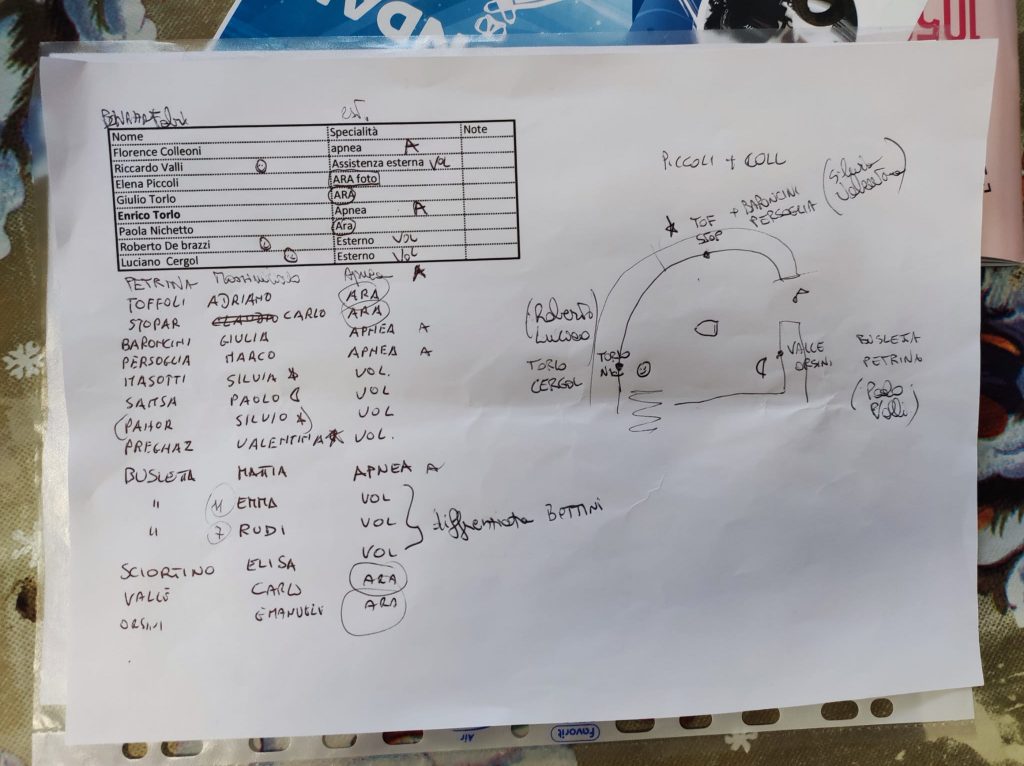 105
est.
Nome Specialità Note
Florence Colleoni apnea A
Riccardo Valli Assistenza esterna VOL
Elena Piccoli ARA foto
Giulio Torlo ARA
Enrico Torlo Apnea A
Paola Nichetto Ara
Roberto De brazzi Esterno VOL
Luciano Cergol Esterno VOL
PETRINA Apnea A
TOFFOLI ADRIANO ARA
STOPAR CLAUDIO CARLO ARA
BARONCINI GIULIA APNEA A
PERSOGLIA MARCO APNEA A
MASOTTI SILVIA VOL.
SAMSA PAOLO VOL
(PAHOR SILVIO) VOL
PREGHAZ VALENTINA VOL.
BUSLETTA MATTIA APNEA A
" 11 EMMA VOL
" 7 RUDI VOL
VOL
differenziata BETTINI
SCIORTINO ELISA
VALLE CARLO ARA
ORSINI EMANUELE ARA
PICCOLI + COLL
TOF + BARONCINI
STOP PERSOGLIA
(Silvia
Valentina)
(Roberto
Luciano)
TORLO
CERGOL
TORLO
NIC
VALLE
ORSINI
BUSLETTA
PETRINA
(Paolo
Valli)
Air
Favorit